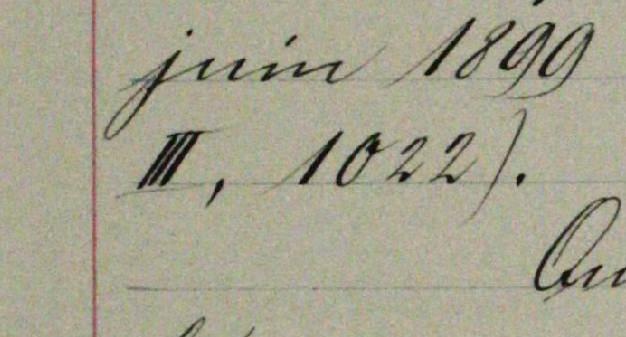 juin 1899
III, 1022).